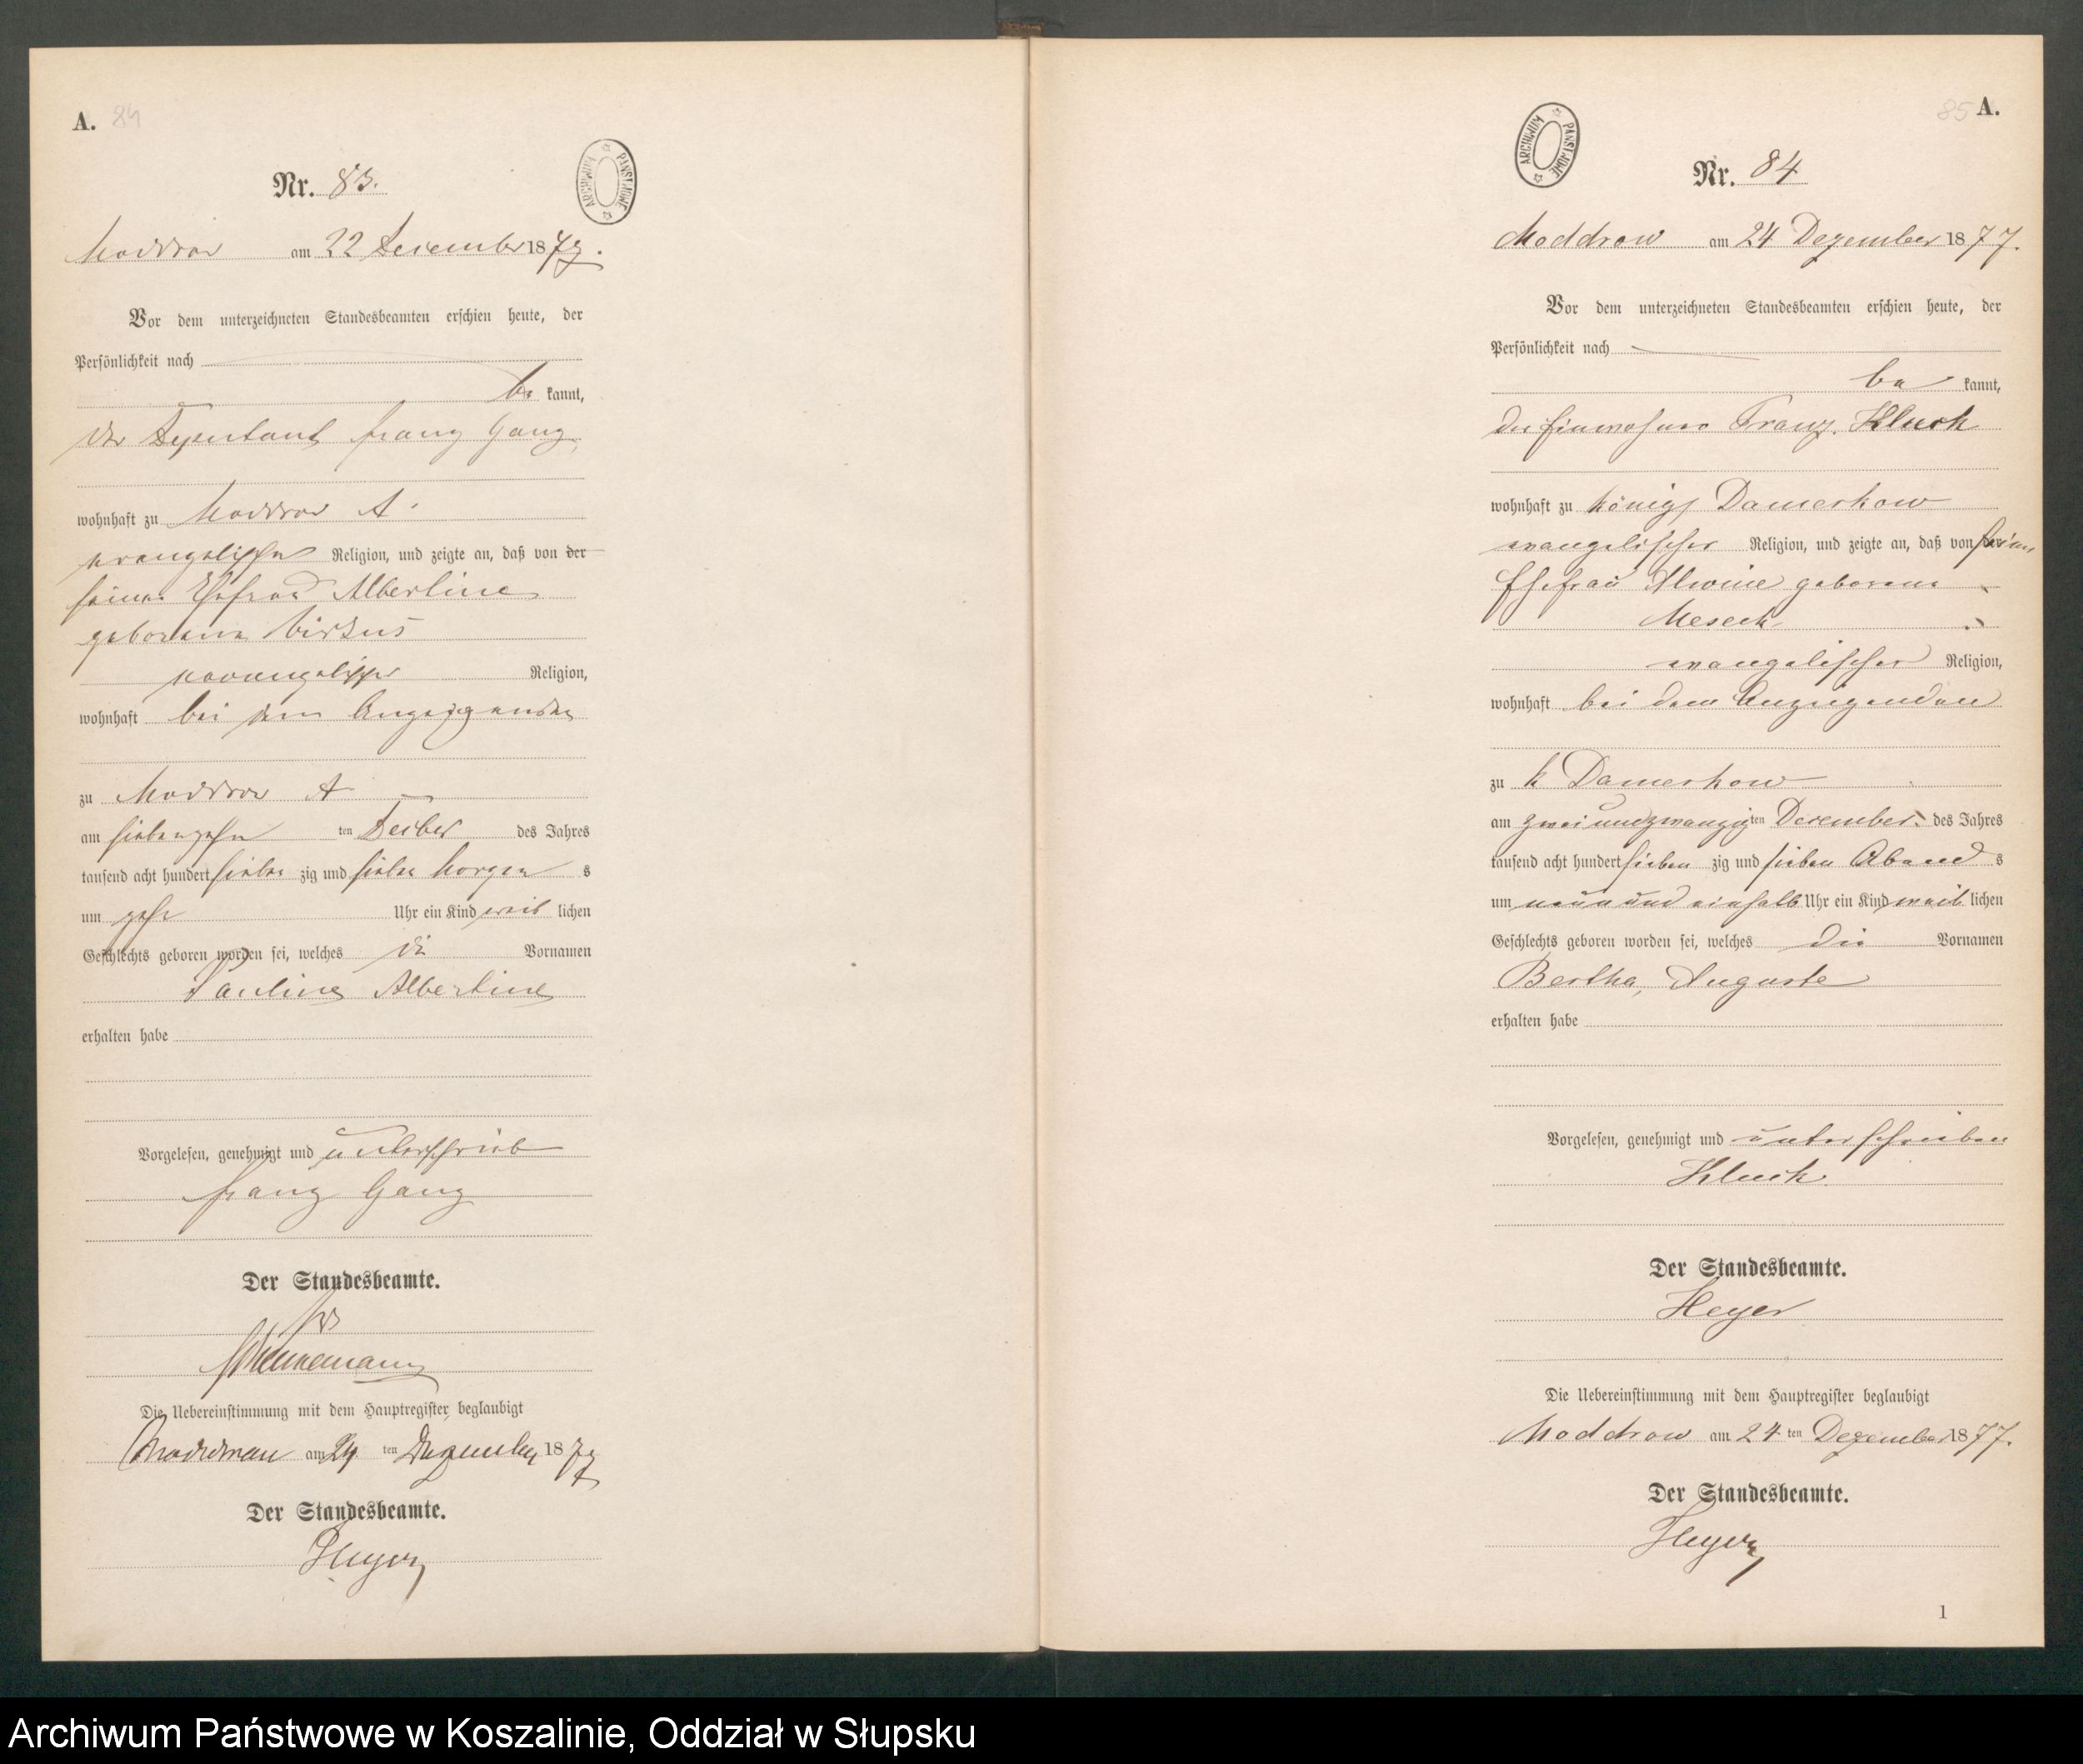 A. 84
Nr. 83.
ARCHIWUM PAŃSTWOWE
Moddrow am 22 December 1877.
Vor dem unterzeichneten Standesbeamten erschien heute, der
Persönlichkeit nach
be kannt,
der Deputant Franz Ganz
wohnhaft zu Moddrow A.
evangelischer Religion, und zeigte an, daß von der
seiner Ehefrau Albertine
geborene
evangelischer Religion,
wohnhaft bei dem Anzeigenden
zu Moddrow A
am siebenzehn ten Dezber des Jahres
tausend acht hundert sieben zig und sieben Morgen s
um zehn Uhr ein Kind weib lichen
Geschlechts geboren worden sei, welches die Vornamen
Pauline Albertine
erhalten habe
Vorgelesen, genehmigt und unterschrieben
Franz Ganz
Der Standesbeamte.
Die Uebereinstimmung mit dem Hauptregister beglaubigt
Moddrow am 24 ten Dezember 1877
Der Standesbeamte.
Heyer
85 A.
ARCHIWUM PAŃSTWOWE
Nr. 84
Moddrow am 24 Dezember 1877.
Vor dem unterzeichneten Standesbeamten erschien heute, der
Persönlichkeit nach
be kannt,
der Einwohner Franz Kluck
wohnhaft zu Königs Damerkow
evangelischer Religion, und zeigte an, daß von seiner
Ehefrau Alwine geborene
Meseck
evangelischer Religion,
wohnhaft bei dem Anzeigenden
zu K Damerkow
am zweiundzwanzig ten December des Jahres
tausend acht hundert sieben zig und sieben Abend s
um neun und einhalb Uhr ein Kind weib lichen
Geschlechts geboren worden sei, welches die Vornamen
Bertha, Auguste
erhalten habe
Vorgelesen, genehmigt und unterschrieben
Kluck.
Der Standesbeamte.
Heyer
Die Uebereinstimmung mit dem Hauptregister beglaubigt
Moddrow am 24 ten Dezember 1877.
Der Standesbeamte.
Heyer
1
Archiwum Państwowe w Koszalinie, Oddział w Słupsku